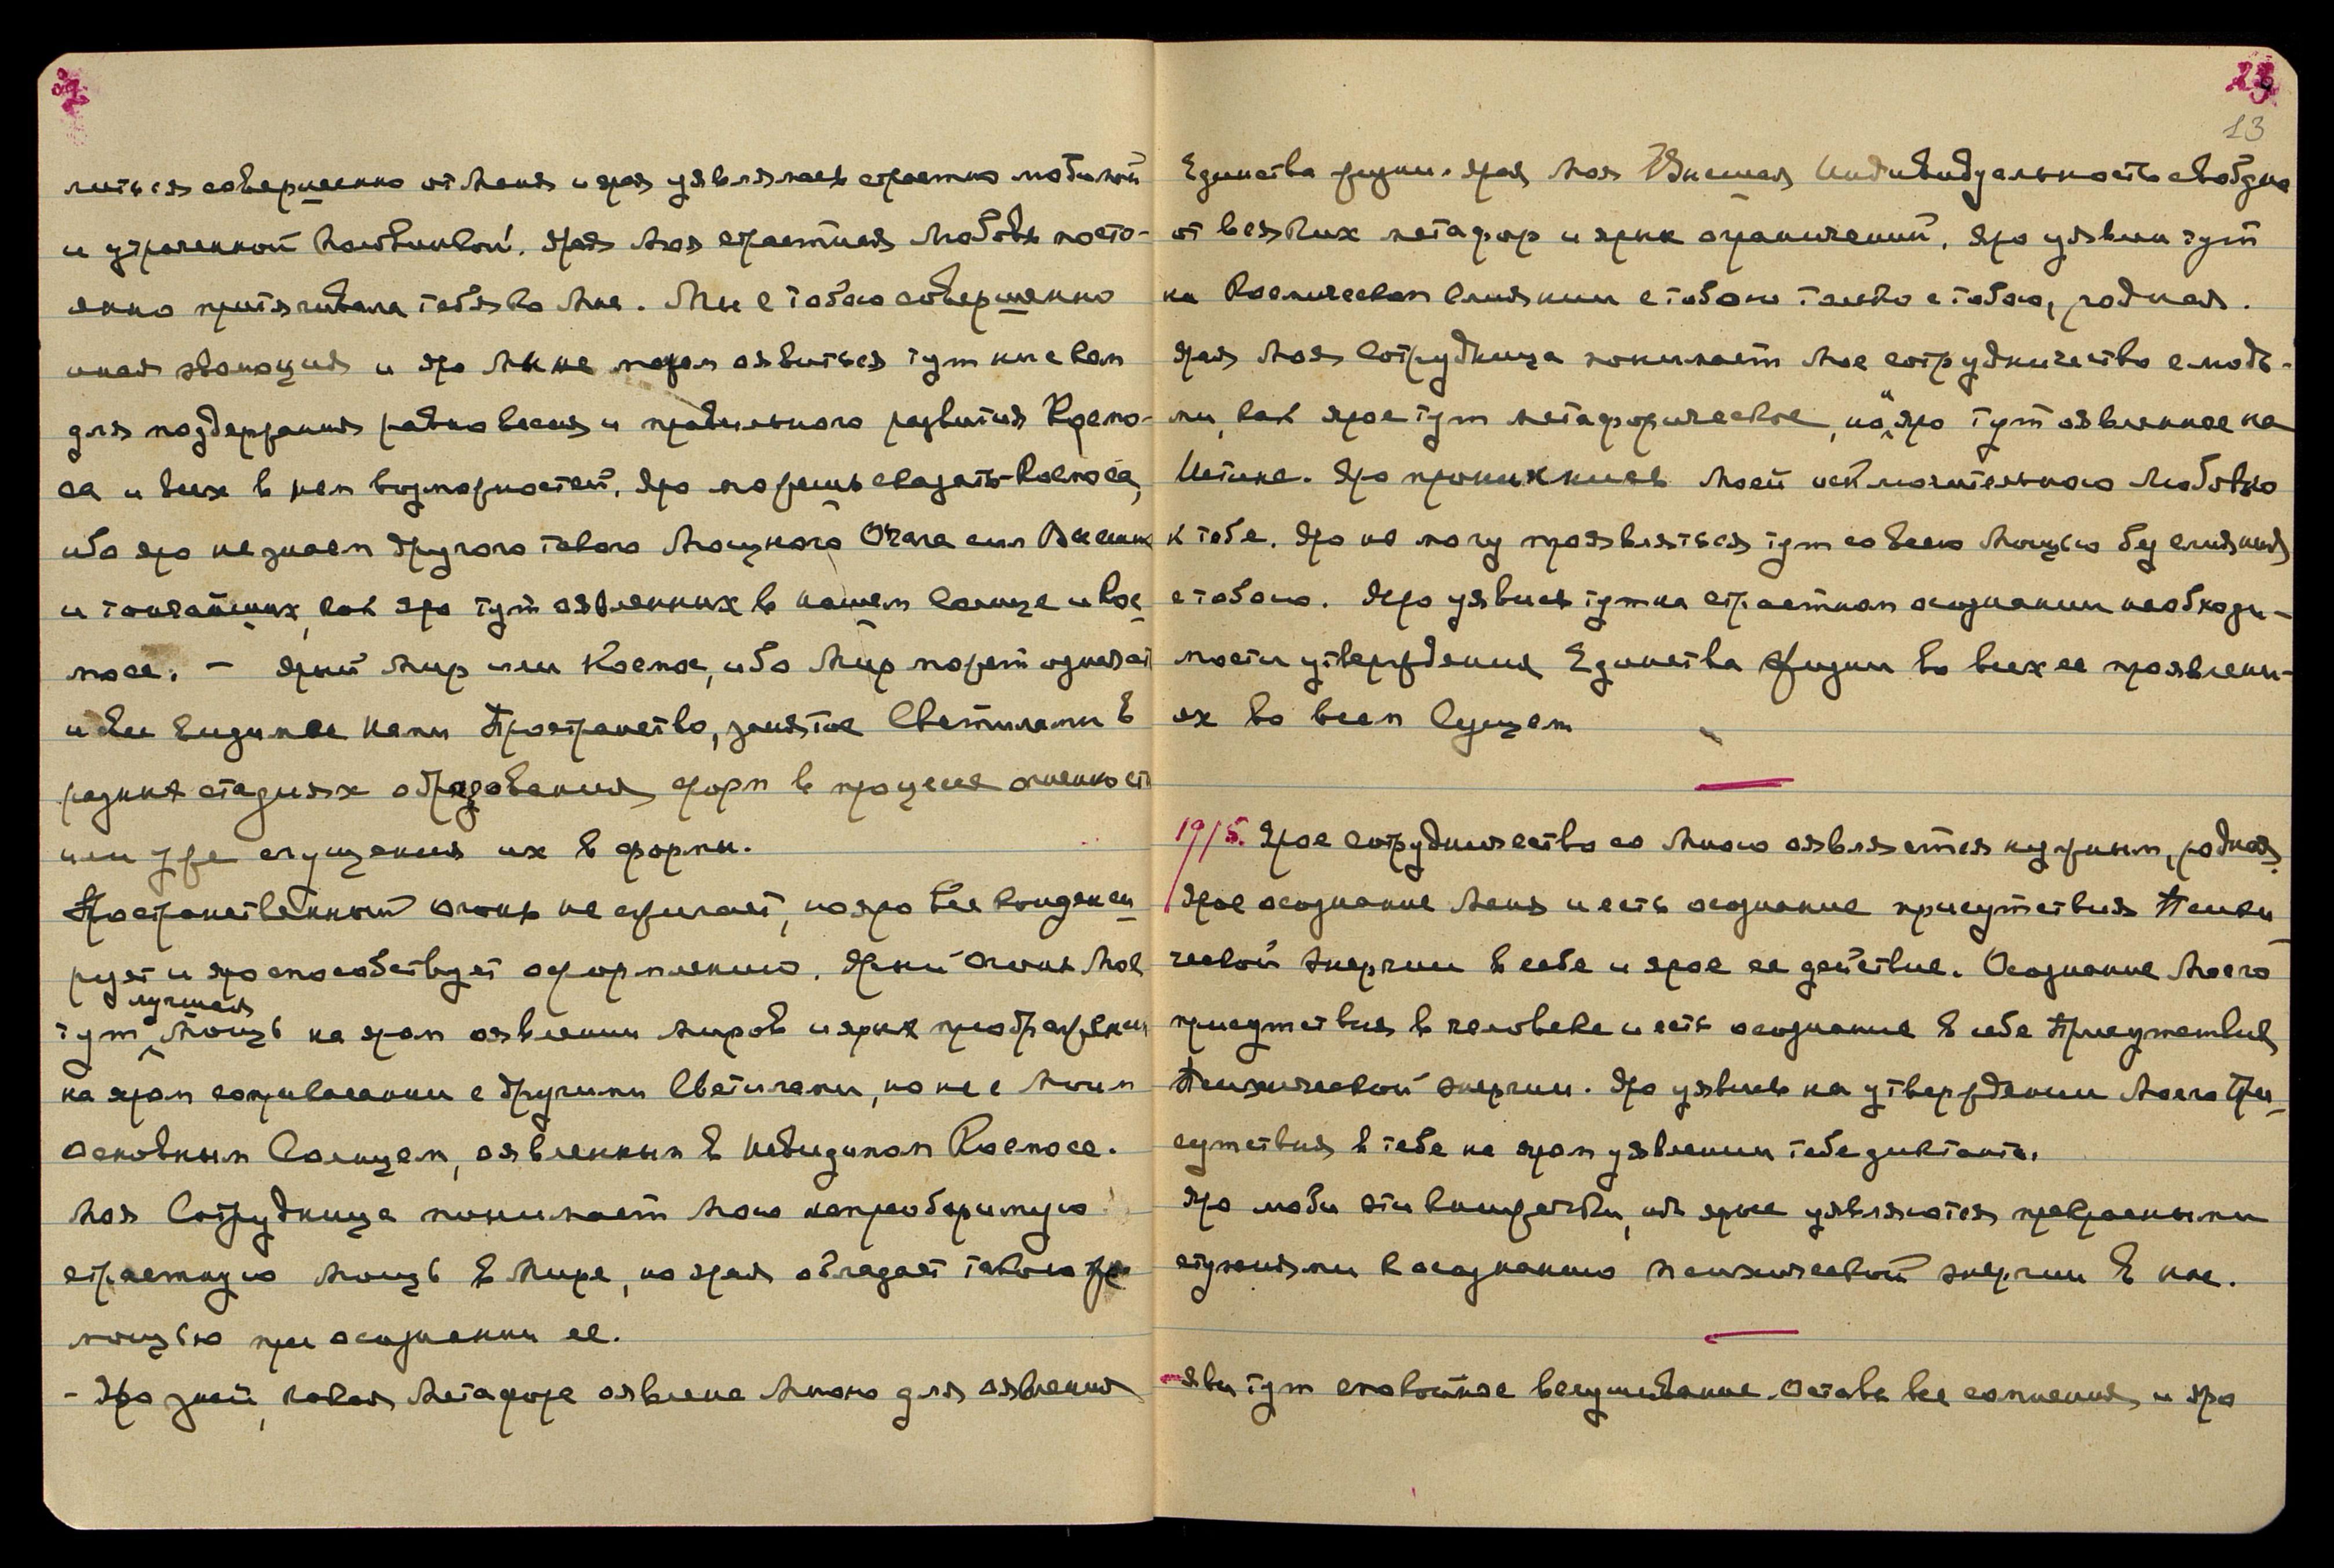 литься совершенно от Меня и ярая уявлялась страстно любимой
и утраченной Половинкой. Ярая Моя страстная Любовь посто-
янно притягивала тебя ко Мне. Мы с тобою совершенно
иная эволюция и яро Мы не можем оявиться тут ни в ком
для поддержания равновесия и правильного развития Космо-
са и всех в нем возможностей. Яро можешь сказать Космоса,
ибо яро не знаем другого такого Мощного Очага сил Высших
и тончайших, как яро тут оявленных в нашем Солнце и Кос-
мосе. – Ярый Мир или Космос, ибо Мир может означать
и все видимое Нами Пространство, занятое Светилами в
разных стадиях образования форм в процессе огненности
или уже сгущения их в формы.
Пространственный огонь не сжигает, но яро все конденси-
рует и яро способствует оформлению. Ярый Огонь Мой
лучшая
тут Мощь на яром оявлении миров и ярых преображений
на яром соприкасании с другими Светилами, но не с Моим
Основным Солнцем, оявленным в Невидимом Космосе.
Моя Сотрудница понимает Мою непреоборимую
страстную Мощь в Мире, но ярая обладает такою же
мощью при осознании ее.
– Яро знай, какая Метафора оявлена Мною для оявления
23
13
Единства жизни. Ярая Моя Высшая Индивидуальность свободна
от всяких метафор и ярых ограничений. Яро уявим тут
на Космическом слиянии с тобою только с тобою, родная.
Ярая Моя Сотрудница понимает Мое сотрудничество с людь-
ми, как ярое тут метафорическое, но яро тут оявленное на
Истине. Яро проникнись Моей исключительною Любовью
к тебе. Яро не могу проявляться тут со всею Мощью без слияния
с тобою. Яро уявись тут на страстном осознании необходи-
мости утверждения Единства жизни во всех ее проявлени-
ях во всем Сущем
19/5. Ярое сотрудничество со Мною оявляется нужным, родная.
Ярое осознание Меня и есть осознание присутствия Психи
ческой энергии в себе и ярое ее действие. Осознание Моего
присутствия в человеке и есть осознание в себе Присутствия
Психической энергии. Яро уявись на утверждении Моего При-
сутствия в тебе на яром уявлении тебе диктанта.
Яро люби эти книжечки, ибо ярые уявляются прекрасными
ступенями к осознанию психической энергии в нас.
Яви тут спокойное вслушивание. Оставь все сомнения и яро